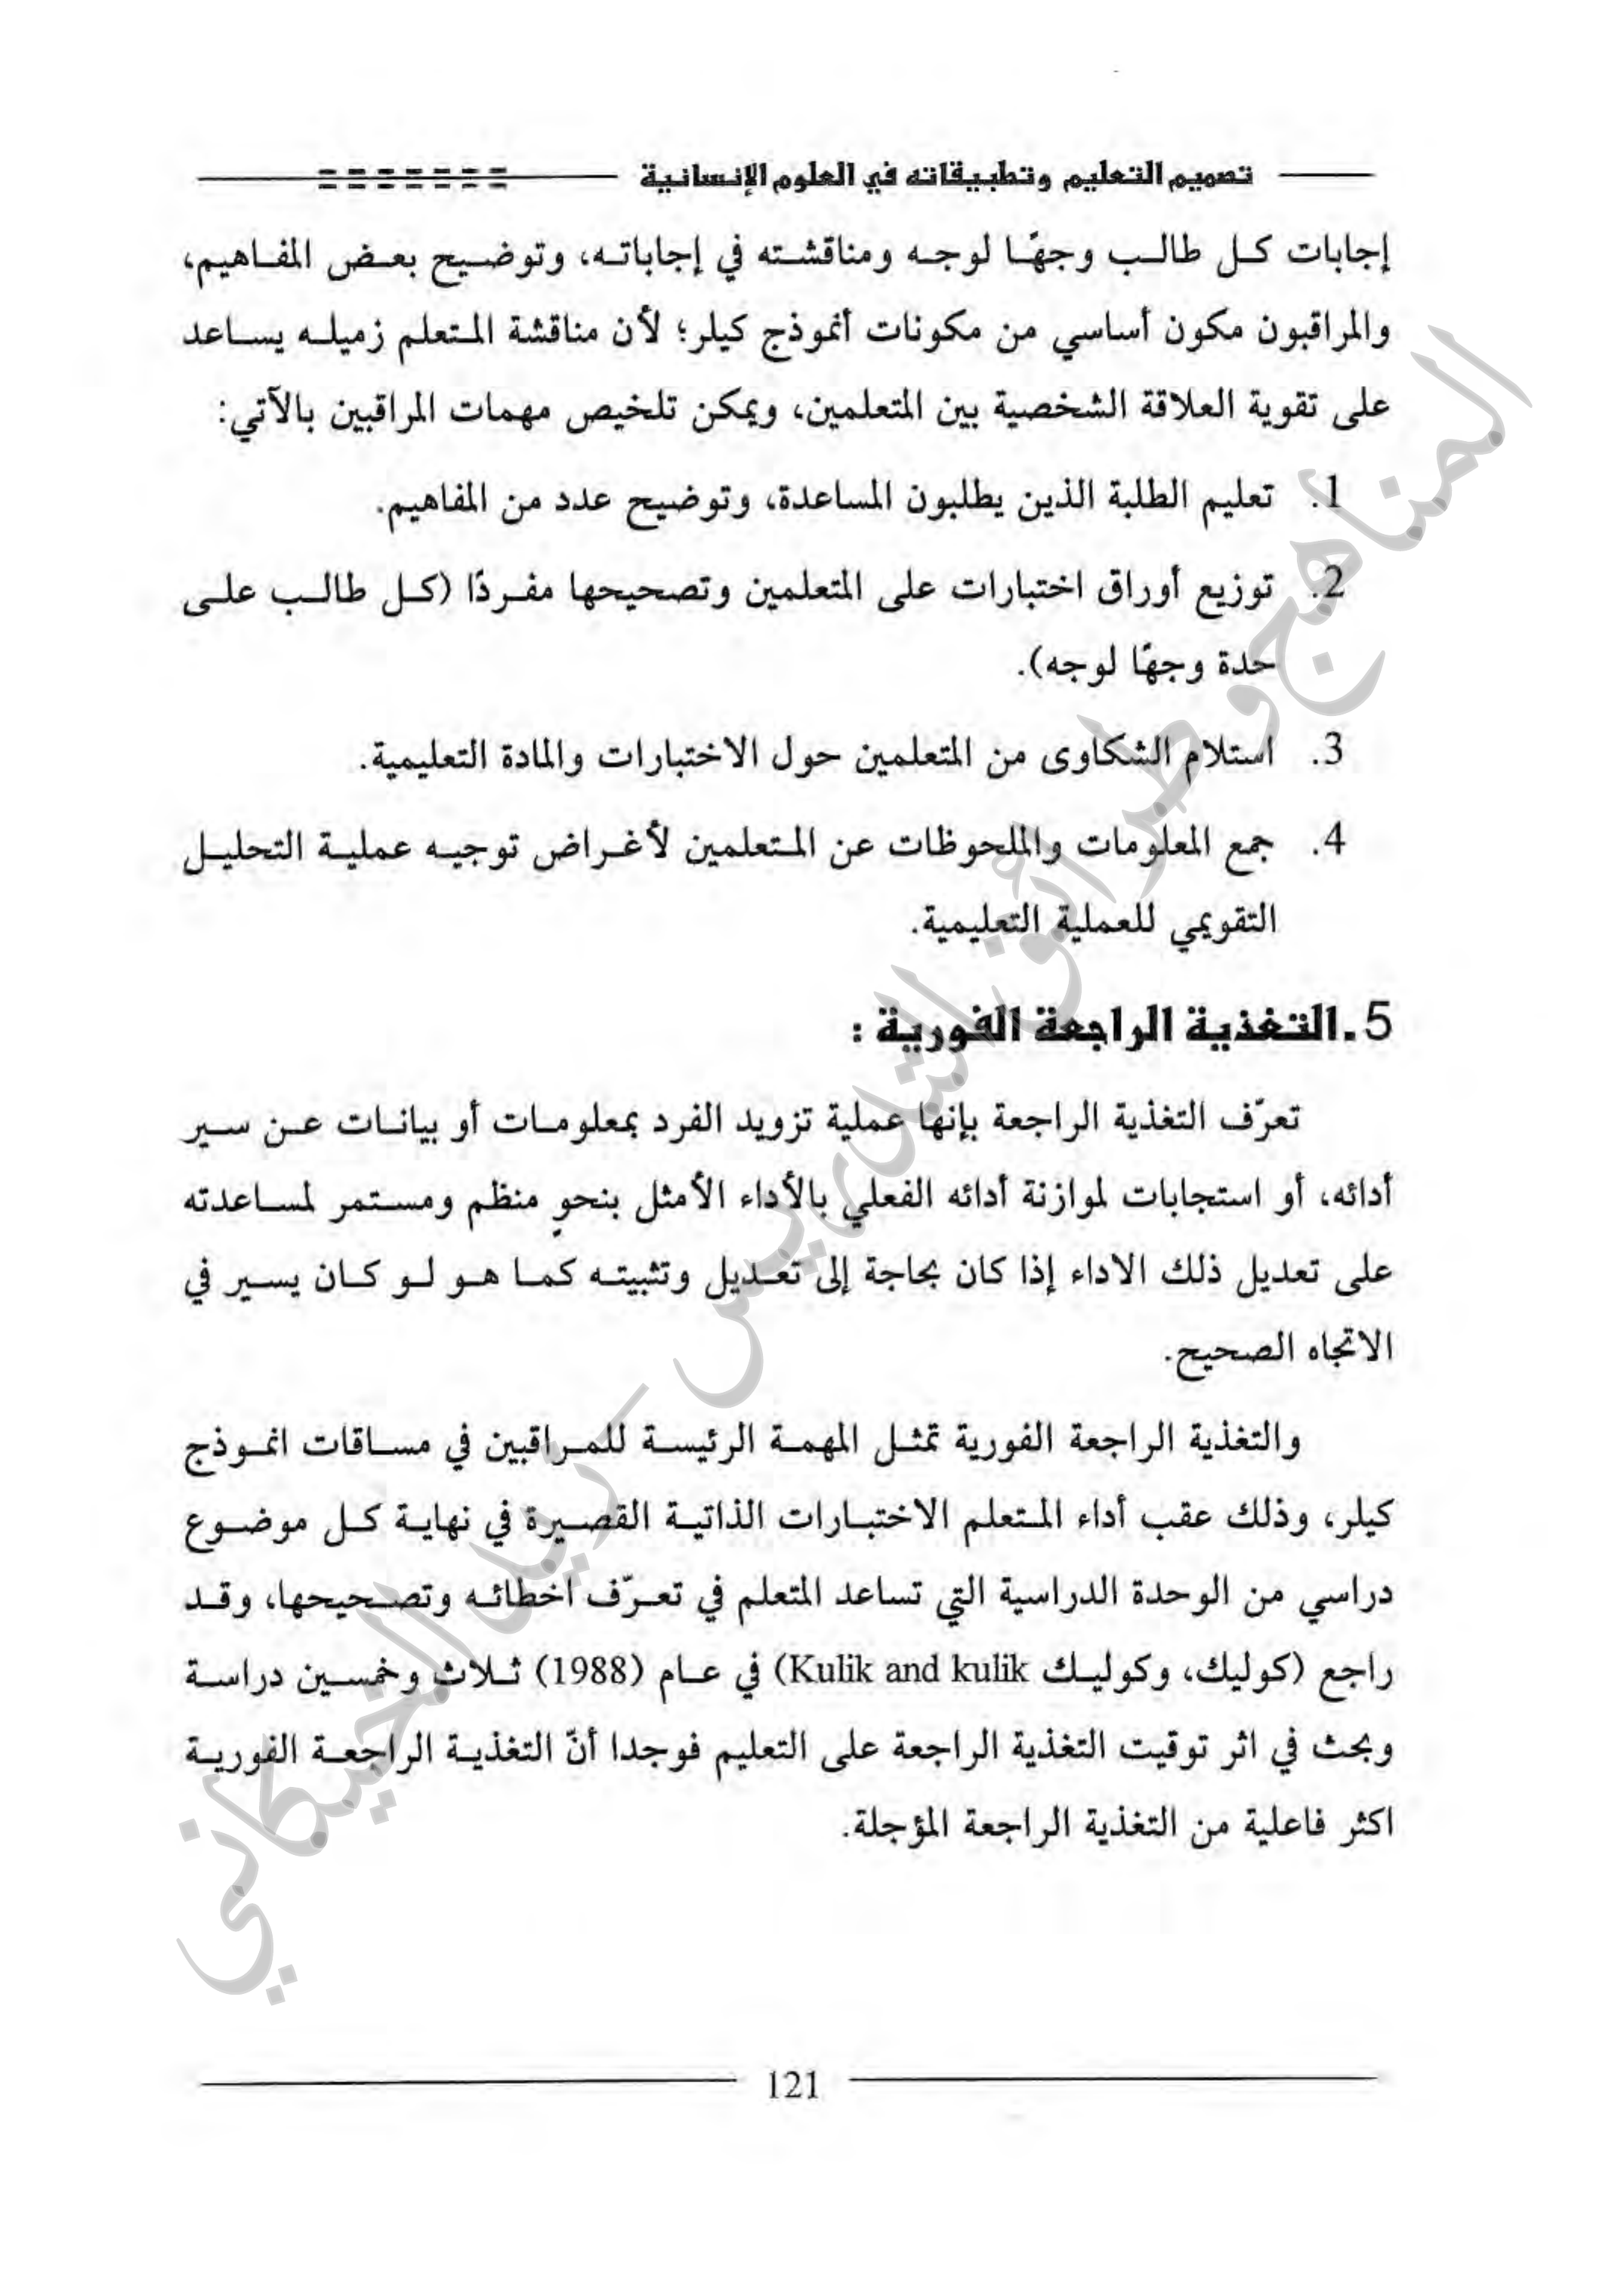 تصميم التعليم وتطبيقاته في العلوم الإنسانية
إجابات كل طالب وجهًا لوجه ومناقشته في إجاباته، وتوضيح بعض المفاهيم،
والمراقبون مكون أساسي من مكونات أنموذج كيلر؛ لأن مناقشة المتعلم زميله يساعد
على تقوية العلاقة الشخصية بين المتعلمين، ويمكن تلخيص مهمات المراقبين بالآتي:
1. تعليم الطلبة الذين يطلبون المساعدة، وتوضيح عدد من المفاهيم.
2. توزيع أوراق اختبارات على المتعلمين وتصحيحها مفردًا (كل طالب على
حدة وجهًا لوجه).
3. استلام الشكاوى من المتعلمين حول الاختبارات والمادة التعليمية.
4. جمع المعلومات والملحوظات عن المتعلمين لأغراض توجيه عملية التحليل
التقويمي للعملية التعليمية.
5. التغذية الراجعة الفورية :
تعرّف التغذية الراجعة بإنها عملية تزويد الفرد بمعلومات أو بيانات عن سير
أدائه، أو استجابات لموازنة أدائه الفعلي بالأداء الأمثل بنحوٍ منظم ومستمر لمساعدته
على تعديل ذلك الاداء إذا كان بحاجة إلى تعديل وتثبيته كما هو لو كان يسير في
الاتجاه الصحيح.
والتغذية الراجعة الفورية تمثل المهمة الرئيسة للمراقبين في مساقات انموذج
كيلر، وذلك عقب أداء المتعلم الاختبارات الذاتية القصيرة في نهاية كل موضوع
دراسي من الوحدة الدراسية التي تساعد المتعلم في تعرّف اخطائه وتصحيحها، وقد
راجع (كوليك، وكوليك Kulik and kulik) في عام (1988) ثلاث وخمسين دراسة
وبحث في اثر توقيت التغذية الراجعة على التعليم فوجدا أنّ التغذية الراجعة الفورية
اكثر فاعلية من التغذية الراجعة المؤجلة.
121
المناهج وطرائق التدريس - ريد الخيكاني